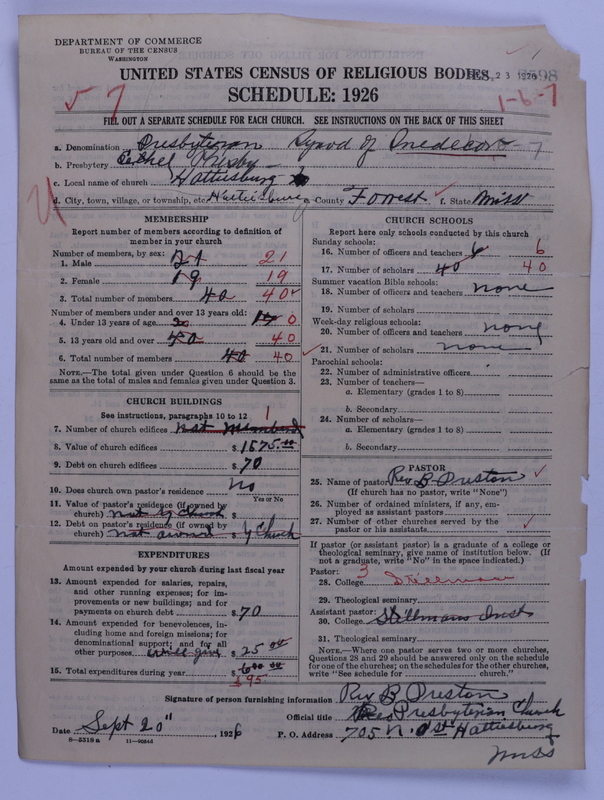 DEPARTMENT OF COMMERCE
BUREAU OF THE CENSUS
WASHINGTON
UNITED STATES CENSUS OF RELIGIOUS BODIES
23 1926
SCHEDULE: 1926
57
1-6-7
FILL OUT A SEPARATE SCHEDULE FOR EACH CHURCH. SEE INSTRUCTIONS ON THE BACK OF THIS SHEET
a. Denomination Presbyterian Synod of
b. Presbytery Bethel
c. Local name of church Hattiesburg
d. City, town, village, or township, etc. Hattiesburg County Forrest f. State Miss
MEMBERSHIP
Report number of members according to definition of member in your church
Number of members, by sex:
1. Male 21 21
2. Female 19 19
3. Total number of members 40 40
Number of members under and over 13 years old:
4. Under 13 years of age 0
5. 13 years old and over 40 40
6. Total number of members 40 40
NOTE.—The total given under Question 6 should be the same as the total of males and females given under Question 3.
CHURCH BUILDINGS
See instructions, paragraphs 10 to 12
7. Number of church edifices 1
8. Value of church edifices $1575.00
9. Debt on church edifices $70
10. Does church own pastor's residence No
Yes or No
11. Value of pastor's residence (if owned by church) not by church $
12. Debt on pastor's residence (if owned by church) not owned $ by Church
EXPENDITURES
Amount expended by your church during last fiscal year
13. Amount expended for salaries, repairs, and other running expenses; for improvements or new buildings; and for payments on church debt $70
14. Amount expended for benevolences, including home and foreign missions; for denominational support; and for all other purposes will give $25 00
15. Total expenditures during year $95
CHURCH SCHOOLS
Report here only schools conducted by this church
Sunday schools:
16. Number of officers and teachers 6 6
17. Number of scholars 40 40
Summer vacation Bible schools:
18. Number of officers and teachers none
19. Number of scholars
Week-day religious schools:
20. Number of officers and teachers none
21. Number of scholars none
Parochial schools:
22. Number of administrative officers
23. Number of teachers—
a. Elementary (grades 1 to 8)
b. Secondary
24. Number of scholars—
a. Elementary (grades 1 to 8)
b. Secondary
PASTOR
25. Name of pastor Rev B Preston
(If church has no pastor, write "None")
26. Number of ordained ministers, if any, employed as assistant pastors
27. Number of other churches served by the pastor or his assistants
If pastor (or assistant pastor) is a graduate of a college or theological seminary, give name of institution below. (If not a graduate, write "No" in the space indicated.)
Pastor: 3
28. College Stillman
29. Theological seminary
Assistant pastor:
30. College Stillmans Inst
31. Theological seminary
NOTE.—Where one pastor serves two or more churches, Questions 28 and 29 should be answered only on the schedule for one of the churches; on the schedules for the other churches, write "See schedule for church."
Signature of person furnishing information Rev B Preston
Official title Presbyterian Church
Date Sept 20" , 1926 P. O. Address 705 N. 1st Hattiesburg
Miss
8—5318 a 11—9034